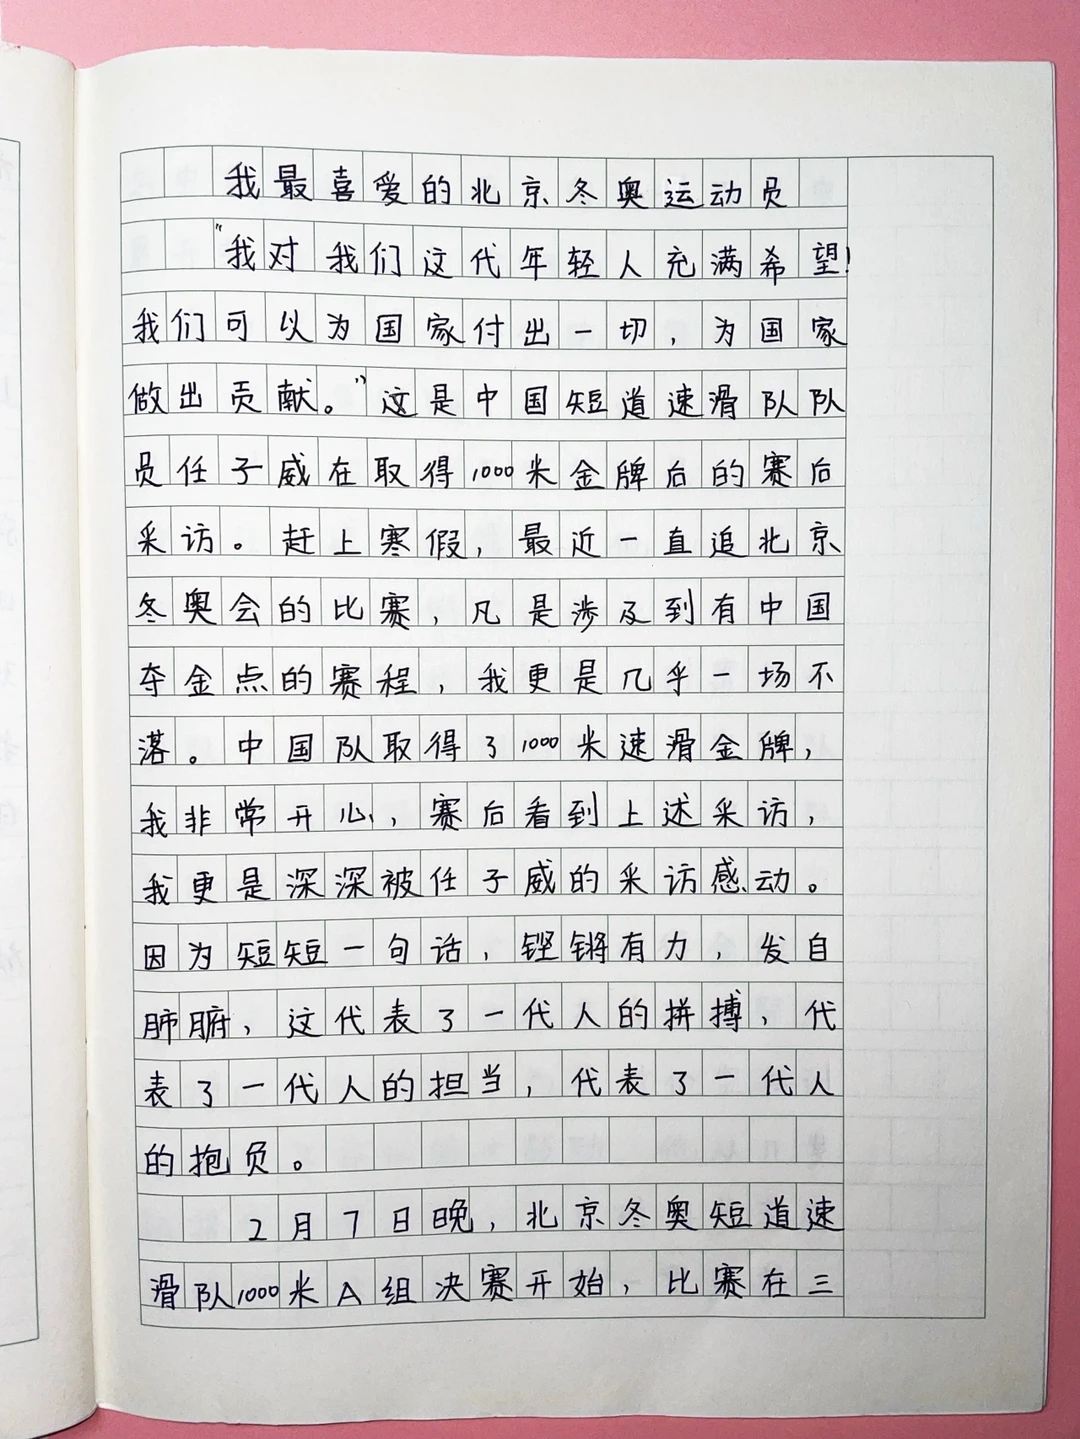 我最喜爱的北京冬奥运动员
“我对我们这代年轻人充满希望！
我们可以为国家付出一切，为国家
做出贡献。”这是中国短道速滑队队
员任子威在取得1000米金牌后的赛后
采访。赶上寒假，最近一直追北京
冬奥会的比赛，凡是涉及到有中国
夺金点的赛程，我更是几乎一场不
落。中国队取得了1000米速滑金牌，
我非常开心，赛后看到上述采访，
我更是深深被任子威的采访感动。
因为短短一句话，铿锵有力，发自
肺腑，这代表了一代人的拼搏，代
表了一代人的担当，代表了一代人
的抱负。
2月7日晚，北京冬奥短道速
滑队1000米A组决赛开始，比赛在三